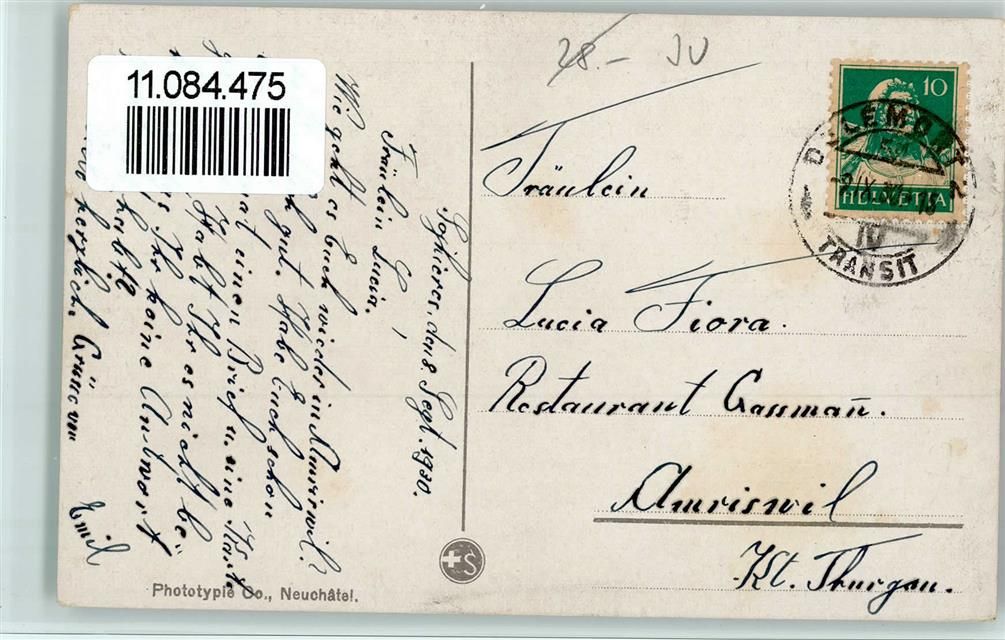 11.084.475
28.– JU
10
HELVETIA
DELÉMONT 2
TRANSIT
IV
Fräulein
Lucia Fiora.
Restaurant Gassmañ.
Amriswil
Kt. Thurgau.
Soyhieres, den 8. Sept. 1930.
Fräulein Lucia.
Wie geht es Euch wieder in Amriswil?
gut. Habe Euch schon
einen Brief u. eine Karte
Habt Ihr es nicht be=
Ihr keine Antwort
herzlich. Grüsse von
Emil
S
Phototypie Co., Neuchâtel.